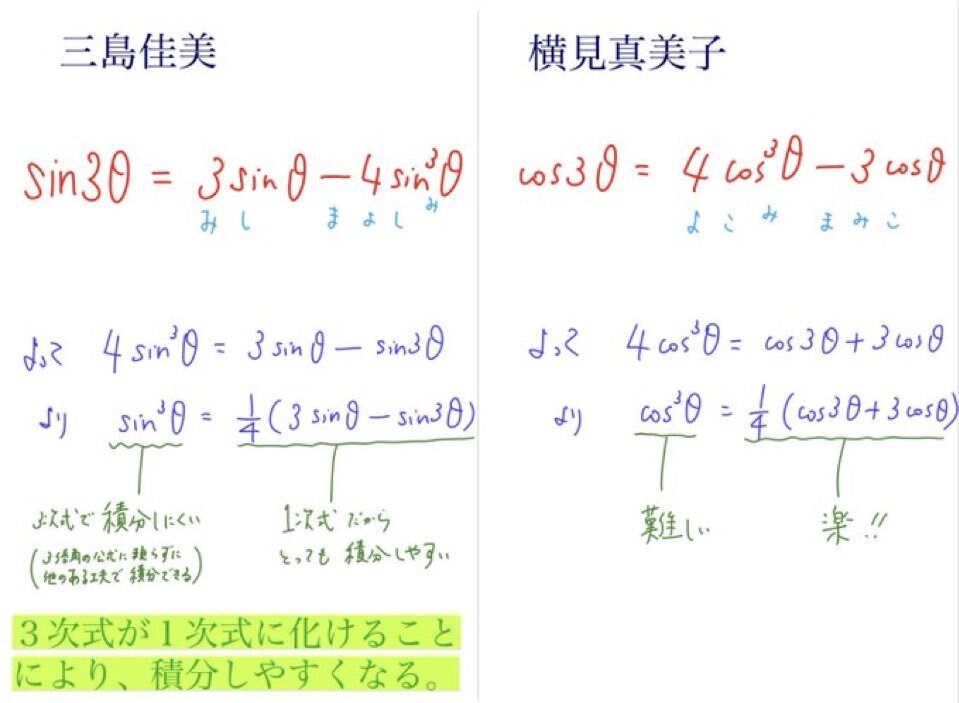 三島佳美
sin3θ = 3sinθ − 4sin³θ
みし まよしみ
よって 4sin³θ = 3sinθ − sin3θ
より sin³θ = 1/4(3sinθ − sin3θ)
3次式で積分しにくい
(3倍角の公式に頼らずに
他のある工夫で積分できる)
1次式だから
とっても積分しやすい
3次式が1次式に化けること
により、積分しやすくなる。
横見真美子
cos3θ = 4cos³θ − 3cosθ
よこみ まみこ
よって 4cos³θ = cos3θ + 3cosθ
より cos³θ = 1/4(cos3θ + 3cosθ)
難しい
楽!!